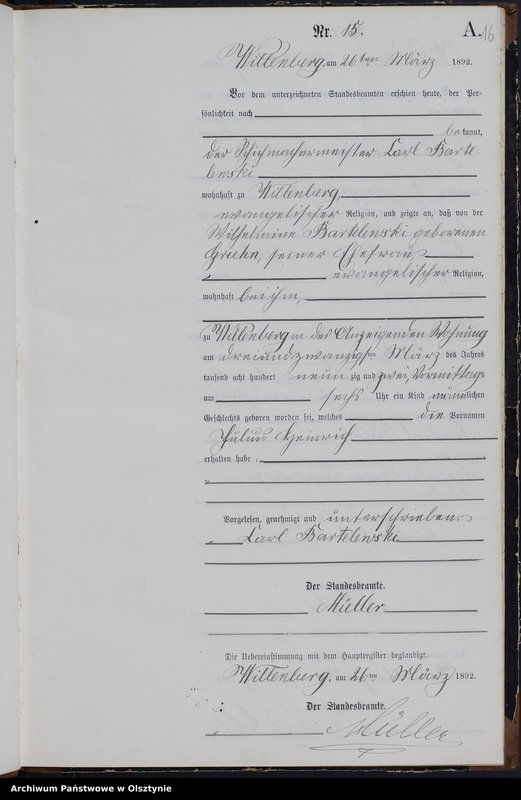 Nr. 15. A. 16
Willenberg, am 26ten März 1892.
Vor dem unterzeichneten Standesbeamten erschien heute, der Per-
sönlichkeit nach
bekannt,
der Schuhmachermeister Carl Barte
lewski
wohnhaft zu Willenberg,
evangelischer Religion, und zeigte an, daß von der
Wilhelmine Bartelewski geborenen
Gruhn, seiner Ehefrau,
evangelischer Religion,
wohnhaft bei ihm,
zu Willenberg in des Anzeigenden Wohnung
am dreiundzwanzigsten März des Jahres
tausend acht hundert neun zig und zwei, Vormittags
um sechs Uhr ein Kind männlichen
Geschlechts geboren worden sei, welches die Vornamen
Julius Heinrich
erhalten habe.
Vorgelesen, genehmigt und unterschrieben.
Carl Bartelewski
Der Standesbeamte.
Müller
Die Uebereinstimmung mit dem Hauptregister beglaubigt.
Willenberg, am 26ten März 1892.
Der Standesbeamte.
Müller
Archiwum Państwowe w Olsztynie